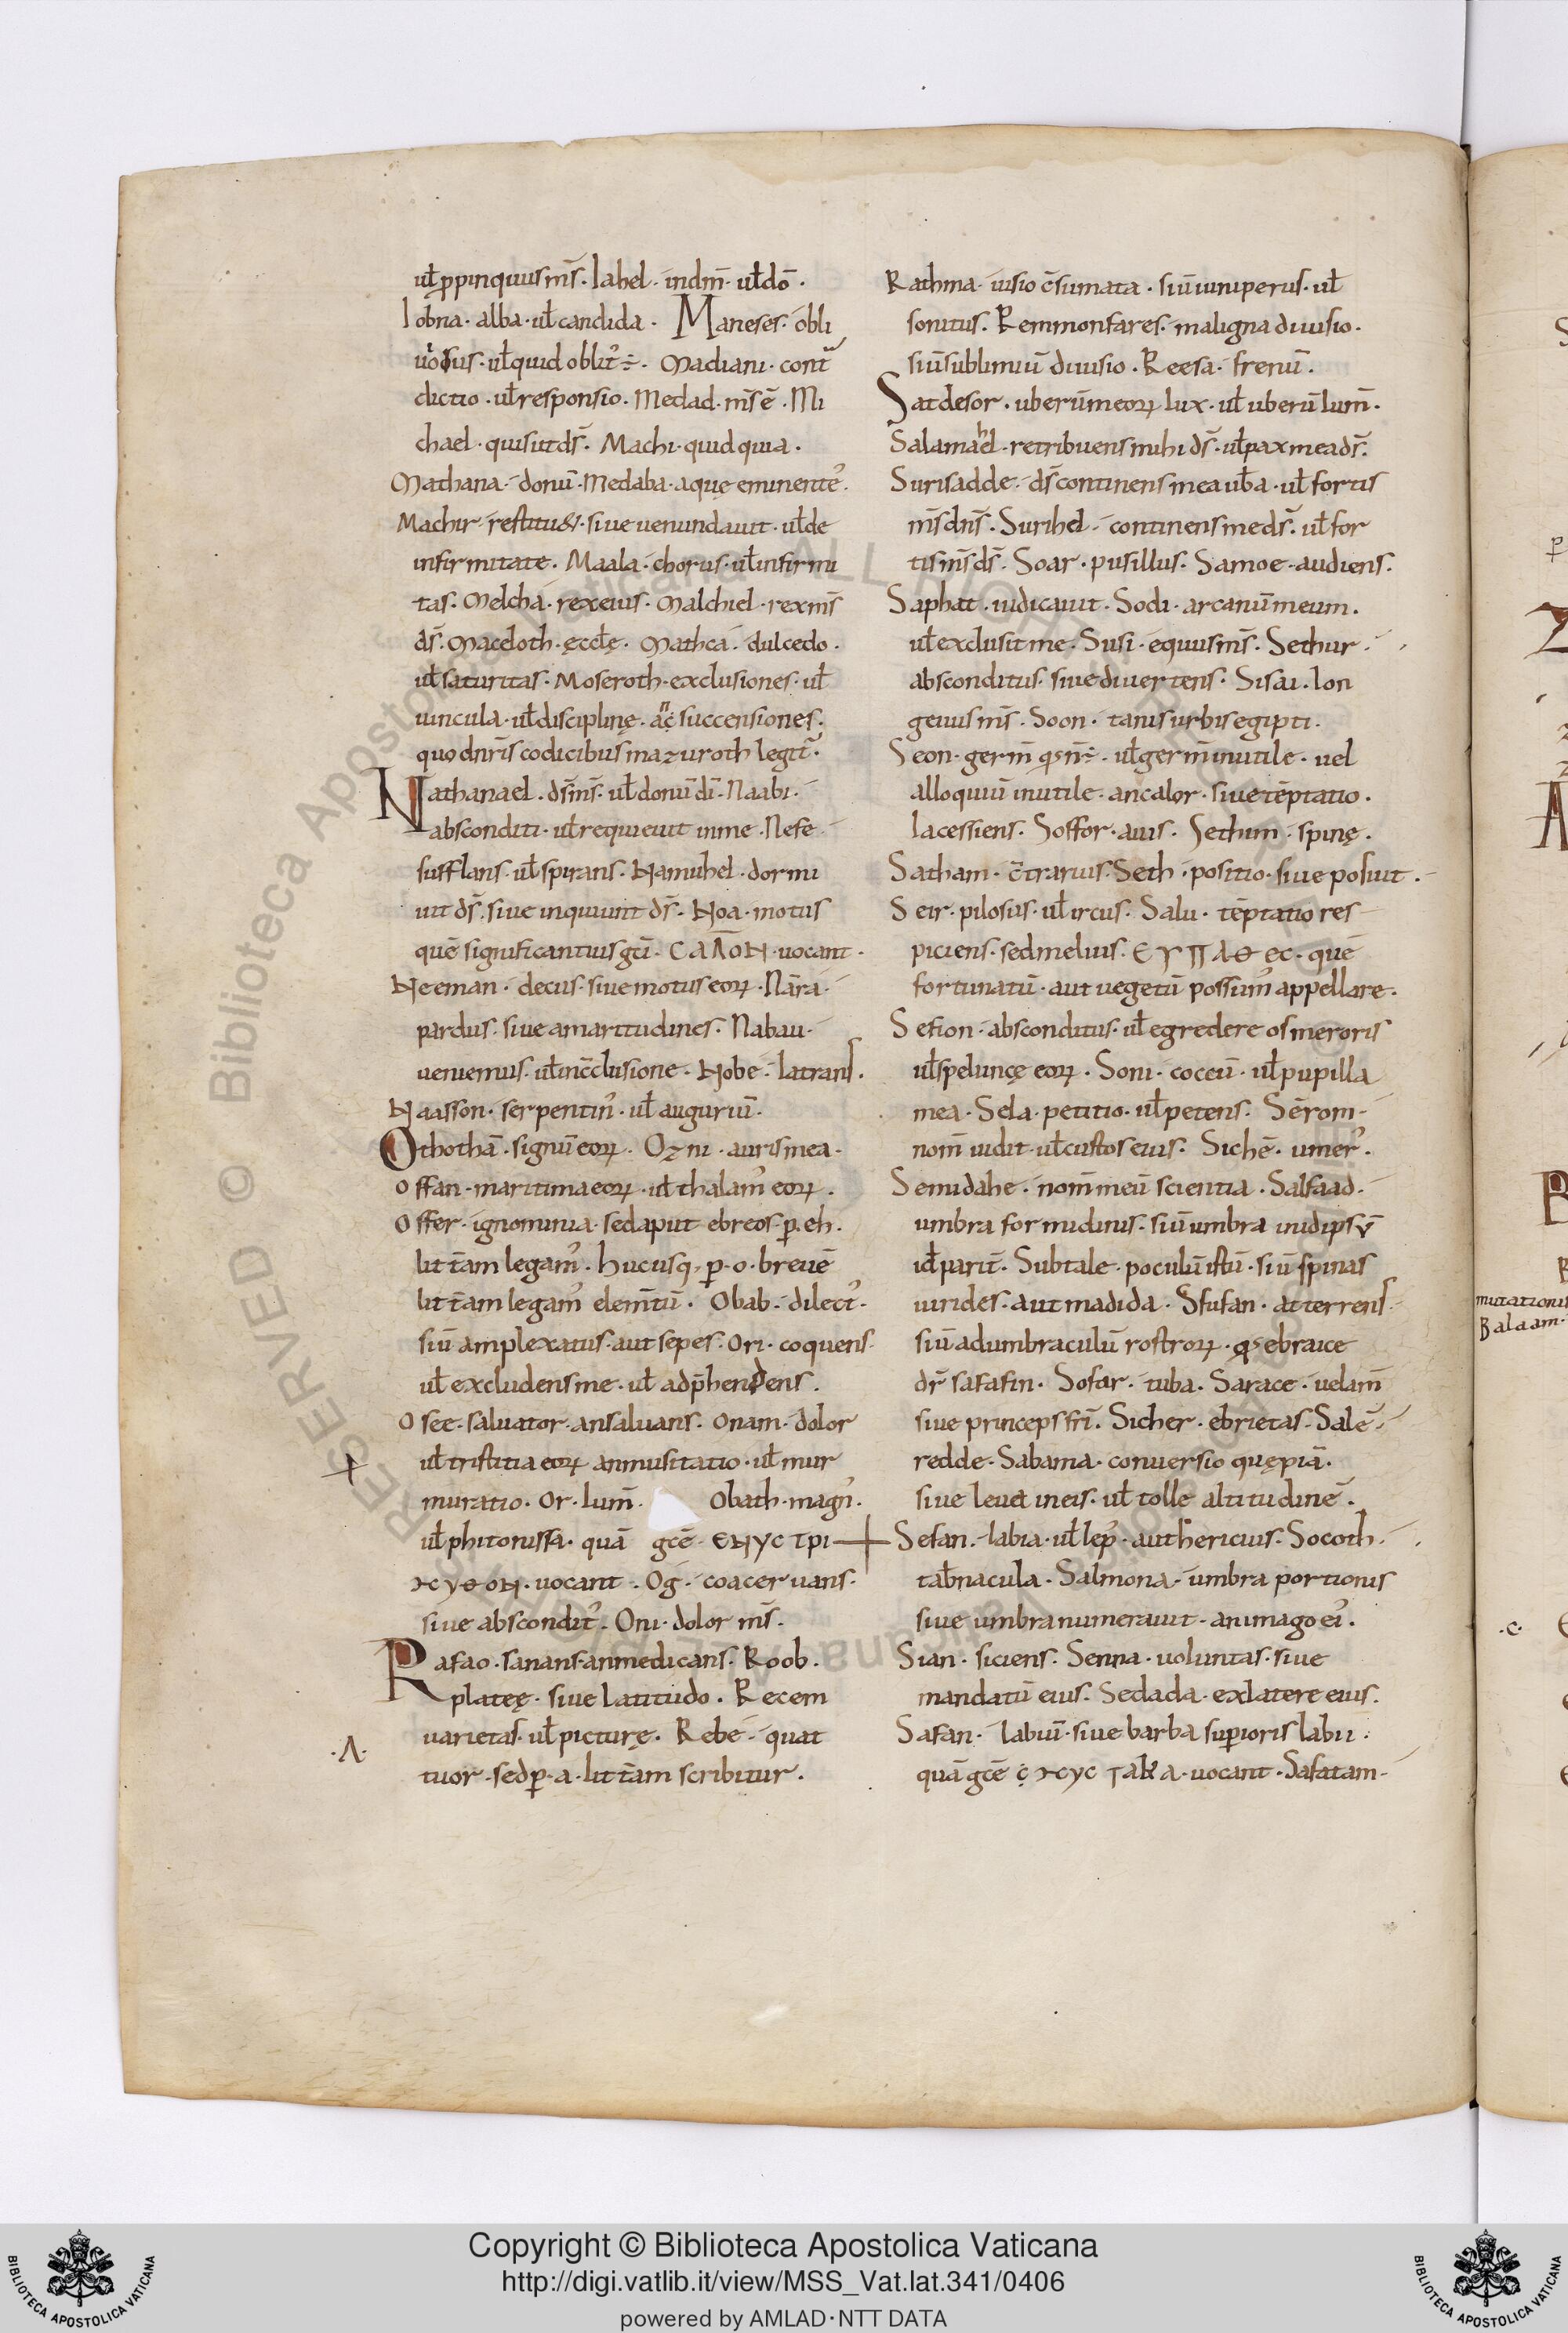 ul̄ ꝓpinquus ms̄. label. indm̄. ul̄ dō.
lobna. alba. ul̄ candida. Maneses. obli
uiosus. ul̄ quid oblit᾿ ÷. Madiani. cont̄
dictio. ul̄ responsio. Medad. ms̄ ē. Mi
chael. quis ut ds̄. Machi. quid quia.
Mathana. donū. Medaba. aquę eminente᾿.
Machir. restitu&. siue uenundauit. ul̄ de
infirmitate. Maala. chorus. ul̄ infirmi
tas. Melcha. rex eius. Malchiel. rex ms̄
ds̄. Maceloth. ęccl̄ę. Mathca. dulcedo.
ul̄ saturitas. Moseroth. exclusiones. ul̄
uincula. ul̄ disciplinę. ac̄ succensiones.
quod nr̄is codicibus mazuroth legit᾿.
Nathanael. ds̄ ms̄. ul̄ donū dī. Naabi.
absconditi. ul̄ requieuit in me. Nefe
sufflans. ul̄ spirans. Namuhel. dormi
uit ds̄. siue inquiunt ds̄. Noa. motus
quē significantius gcī. CAΛΟΝ. uocant.
Neeman. decus. siue motus eoꝝ. Nāra.
pardus. siue amaritudines. Nabau.
ueniemus. ul̄ in c̄clusione. Nobe. latrans.
Naasson. serpentin᾿. ul̄ auguriū.
Othothā. signū eoꝝ. Ozni. auris mea.
Offan. maritima eoꝝ. ul̄ thalam᾿ eoꝝ.
Offer. ignominia. sed aput ebreos. ꝑ. eh.
litt̄am legam᾿. hucusq; ꝑ. o. breuē
litt̄am legam᾿ elem̄tū. Obab. dilect᾿.
siū amplexatus. aut sepes. Ori. coquens.
ul̄ excludens me. ul̄ adp̄hendens.
Osee. saluator. an saluans. Onam. dolor
ul̄ tristitia eoꝝ an musitatio. ul̄ mur
muratio. Or. lum̄. Obath. magn᾿.
ul̄ phitonissa. quā gcē. ЄNΓYC TPI
xyΘON. uocant. Og. coaceruans.
siue abscondit᾿. Oni. dolor ms̄.
Rafao. sanans. an medicans. Roob.
plateę. siue latitudo. Recem
uarietas. ul̄ picturę. Rebe. quat
.Λ.
tuor. sed ꝑ. a. litt̄am scribitur.
Rathma. iusio c̄sumata. siū iuniperus. ul̄
sonitus. Remmonfares. maligna diuisio.
siū sublimiū diuisio. Reesa. frenū.
Satdesor. uberūm eoꝝ lux. ul̄ uberū lum̄.
Salamahel. retribuens mihi ds̄. ul̄ pax mea ds̄.
Surisadde. ds̄ continens mea ub̄a. ul̄ fortis
ms̄ dns̄. Surihel. continens me ds̄. ul̄ for
tis ms̄ ds̄. Soar. pusillus. Samoe. audiens.
Saphat. iudicauit. Sodi. arcanū meum.
ul̄ exclusit me. Susi. equus ms̄. Sethur.
absconditus. siue diuertens. Sisai. lon
geuus ms̄. Soon. tanis urbis egipti.
Seon. germ̄ qs n̄ ÷. ul̄ germ̄ inutile. uel
alloquiū inutile. an calor. siue tēptatio.
lacessiens. Soffor. auis. Sethim. spinę.
Satham. c̄trarius. Seth. positio. siue posuit.
Seir. pilosus. ul̄ ircus. Salu. tēptatio res
piciens. sed melius. ЄΥΠΑΘΕC. quē
fortunatū. aut uegetū possum᾿ appellare.
Sefion. absconditus. ul̄ egredere os meroris
ul̄ speluncę eoꝝ. Soni. coceū. ul̄ pupilla
mea. Sela. petitio. ul̄ petens. Sērom.
nom̄ uidit. ul̄ custos eius. Sichē. umer᾿.
Semidahe. nom̄ meū scientia. Salfaad.
umbra formidinis. siū umbra in idipsū
ul̄ parit̄. Subtale. poculū istū. siū spinas
uirides. aut madida. Sfufan. atterens.
siū adumbraculū rostroꝝ. qs ebraice
dr̄ safafin. Sofar. tuba. Sarace. uelam̄
siue princeps frī. Sicher. ebrietas. Salē.
redde. Sabama. conuersio quępiā.
siue leuet in eis. ul̄ tolle altitudinē.
Sefan. labia. ul̄ lep᾿. aut hericius. Socoth.
tab̄nacula. Salmona. umbra portionis
siue umbra numerauit. an imago ei᾿.
Sian. siciens. Senna. uoluntas. siue
mandatū eius. Sedada. ex latere eius.
Safan. labiū. siue barba suꝑioris labii.
quā gcē uocant. Safatam.
mutationis
Balaam.
.c.
Copyright © Biblioteca Apostolica Vaticana
http://digi.vatlib.it/view/MSS_Vat.lat.341/0406
powered by AMLAD·NTT DATA
BIBLIOTECA APOSTOLICA VATICANA
BIBLIOTECA APOSTOLICA VATICANA